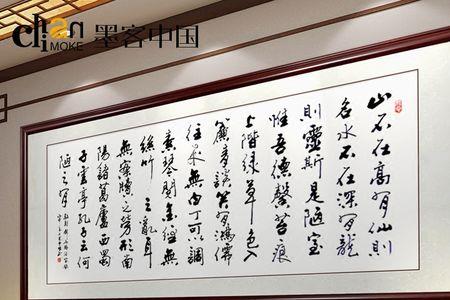 MOKE 墨客中国
山不在高有仙則
名水不在深有龍
則靈斯是陋室
惟吾德馨苔痕
上階綠草色入
簾青談笑有鴻儒
往来無白丁可以調
素琴閱金經無
絲竹之亂耳
無案牘之勞形南
陽諸葛廬西蜀
子雲亭孔子云何
陋之有